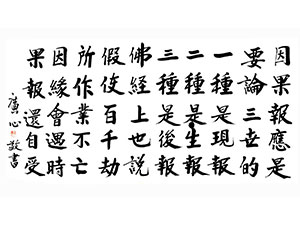 因果報應是
要論三世的
一種是現報
二種是生報
三種是後報
佛經上也説
假使百千劫
所作業不亡
因緣會遇時
果報還自受
廣心敬書